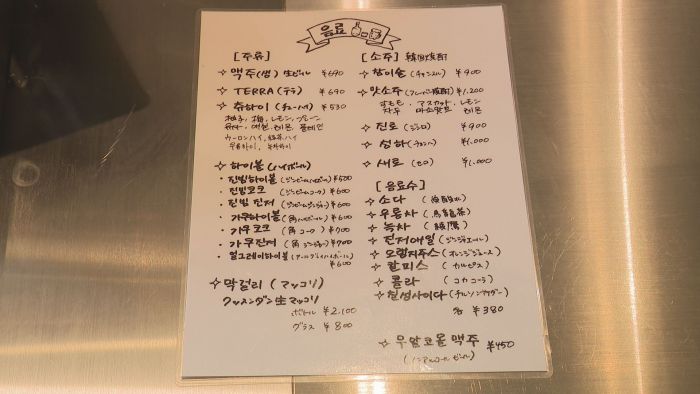 음료
[주류]
☆ 맥주(생) 生ビール ¥690
☆ TERRA (テラ) ¥690
☆ 츄하이 (チューハイ) ¥530
柚子, 梅, レモン, プレーン
유자, 매실, 레몬, 플레인
ウーロンハイ, 緑茶ハイ
우롱하이, 녹차하이
☆ 하이볼 (ハイボール)
· 진빔하이볼 (ジンビームハイボール) ¥500
· 진빔코크 (ジンビームコーク) ¥600
· 진빔 진저 (ジンビームジンジャー) ¥600
· 가쿠하이볼 (角ハイボール) ¥600
· 가쿠코크 (角 コーク) ¥700
· 가쿠진저 (角 ジンジャー) ¥700
· 얼그레이하이볼 (アールグレイハイボール)
¥600
☆ 막걸리 (マッコリ)
クッスンダン生マッコリ
ボトル ¥2,100
グラス ¥800
[소주] 韓国焼酎
☆ 참이슬 (チャミスル) ¥900
☆ 맛소주 (フレーバー焼酎) ¥1,200
すもも, マスカット, レモン
자두 마스캇트 레몬
☆ 진로 (ジンロ) ¥900
☆ ¥1,000
☆ 새로 (セロ) ¥1,000
[음료수]
☆ 소다
☆ 우롱차 (烏龍茶)
☆ 녹차 (緑茶)
☆ 진저에일 (ジンジャエール)
☆ 오렌지주스 (オレンジジュース)
☆ 칼피스 (カルピス)
☆ 콜라 (コカコーラ)
☆ 칠성사이다 (チルソンサイダー)
各 ¥380
☆ 무알코올 맥주 ¥450
(ノンアルコールビール)